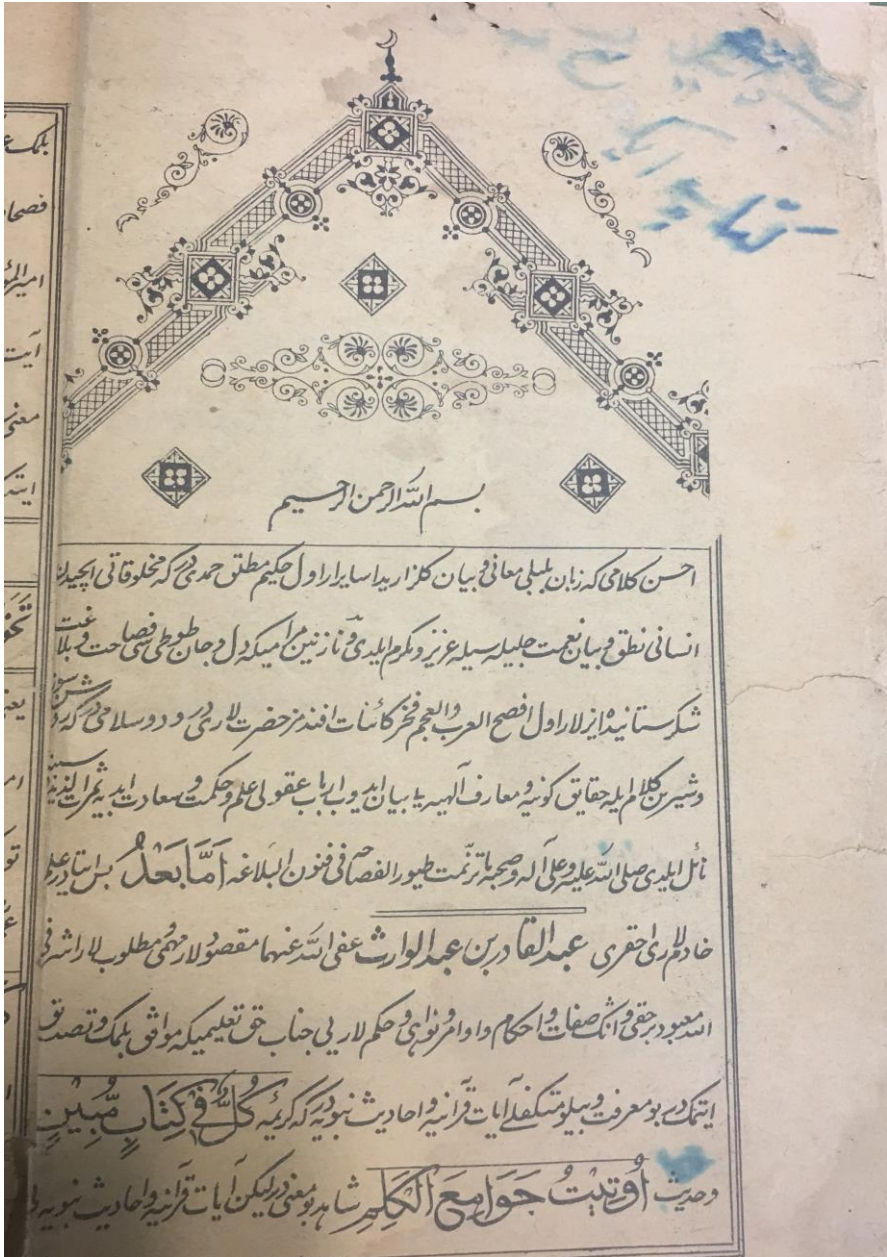 بسم الله الرحمن الرحيم
احسن كلامى كه زبان بلبلى معانى و بيان كلزاريدا سايرار اول حكيم مطلق حمدى در كه مخلوقاتى ايچيدا
انسانى نطق و بيان نعمت جليله سيله عزيز و مكرم ايلدى و نازنين مراميكه دل و جان طوطى سى فصاحت و بلاغت
شكرستانيده ايزلار اول افصح العرب والعجم فخر كائنات افندمز حضرت لارى در و دو سلامى در كه
وشيرين كلام ايله حقايق كونيه و معارف آلهيه يا بيان ايدوب ارباب عقولى علم و حكمت و سعادت ابديه ثمرت
نائل ايلدى صلى الله عليه وعلى آله وصحبه ما ترنمت طيور الفصاحه فى فنون البلاغه اَمَّا بَعْدُ بس
خادم لارى احقرى عبد القادر بن عبد الوارث عفى الله عنهما مقصود لار مهمى مطلوب لار اشرفى
الله معبود برحقى و انك صفات و احكام و اوامر و نواهى و حكم لاريى جناب حق تعليميكه موافق بلمك و تصديق
ايتمك در بو معرفت و بيلو متكفلى آيات قرآنيه و احاديث نبويه در كه كريمه كُلٌّ فِى كِتَابٍ مُّبِينٍ
وحديث اُوتِيتُ جَوَامِعَ الْكَلِمِ شاهد بو معنى در ليكن آيات قرآنيه و احاديث نبويه
بلمك
فصحا
آيت
معنى